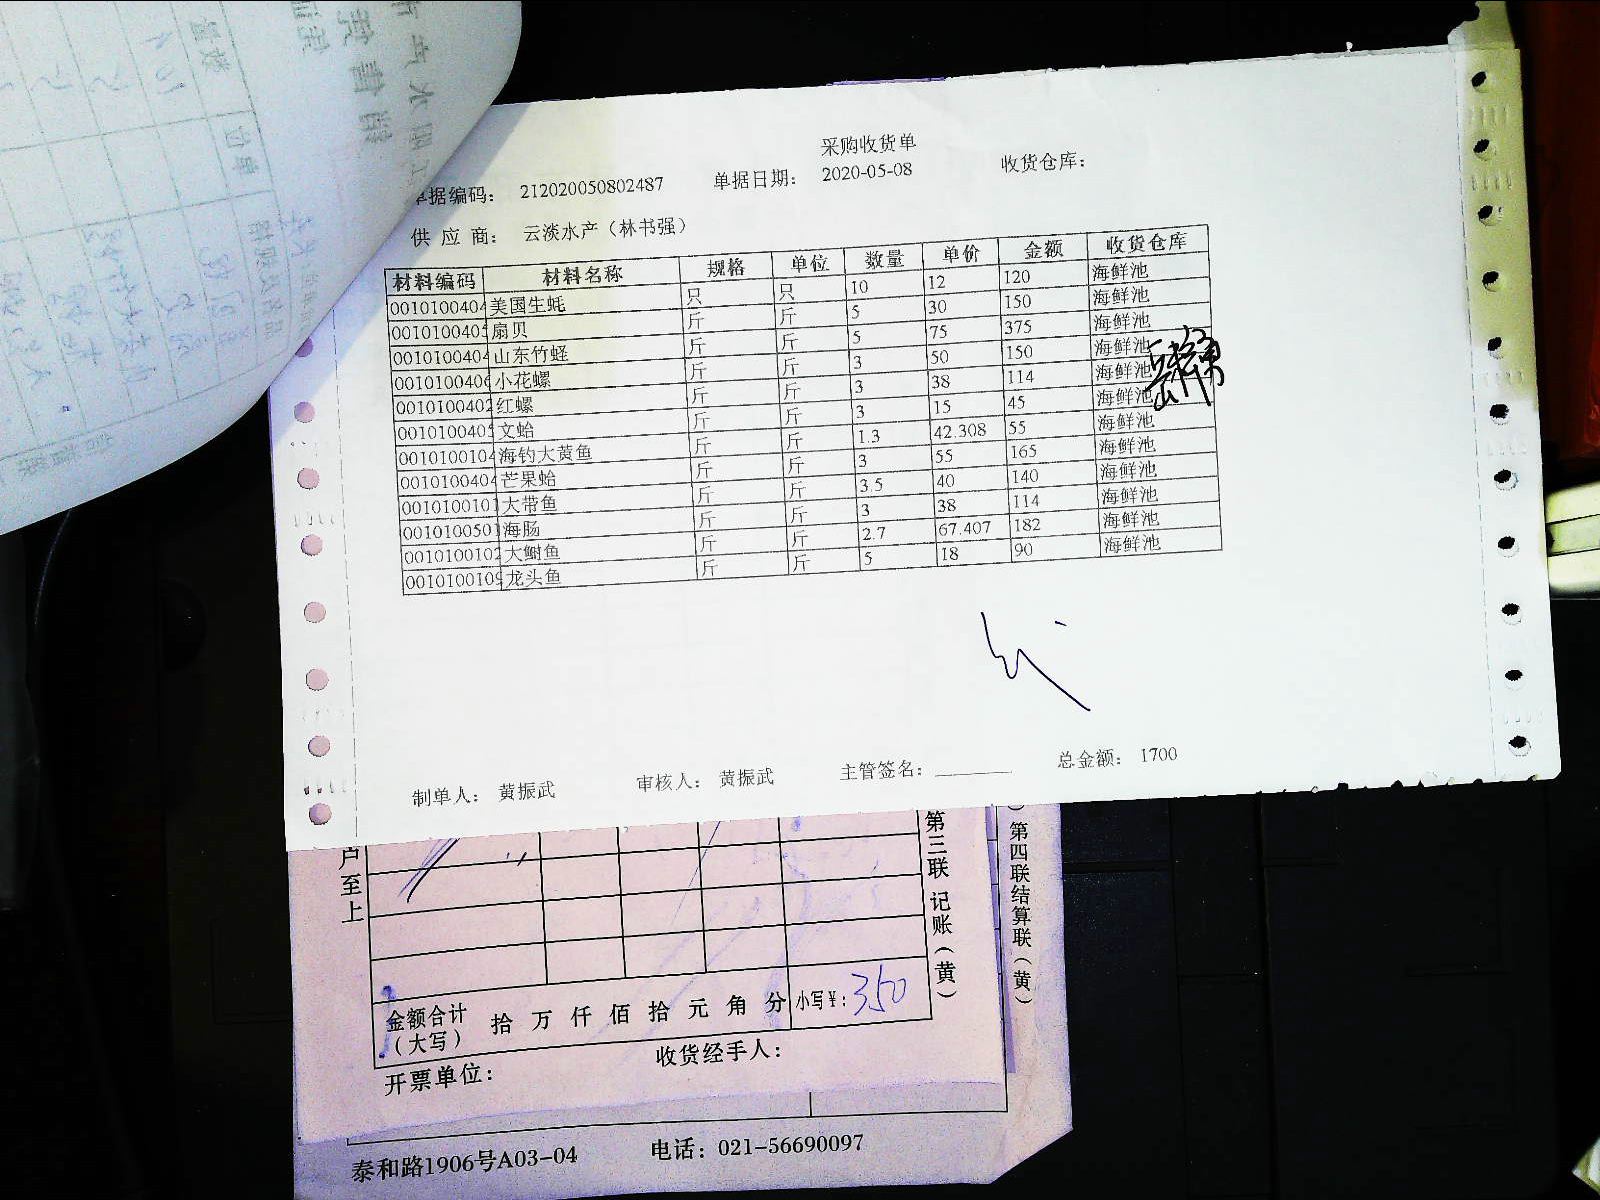 采购收货单
单据编码： 212020050802487 单据日期： 2020-05-08 收货仓库：
供 应 商： 云淡水产（林书强）
材料编码 材料名称 规格 单位 数量 单价 金额 收货仓库
0010100404 美国生蚝 只 只 10 12 120 海鲜池
0010100405 扇贝 斤 斤 5 30 150 海鲜池
0010100404 山东竹蛏 斤 斤 5 75 375 海鲜池
0010100406 小花螺 斤 斤 3 50 150 海鲜池
0010100402 红螺 斤 斤 3 38 114 海鲜池
0010100405 文蛤 斤 斤 3 15 45 海鲜池
0010100104 海钓大黄鱼 斤 斤 1.3 42.308 55 海鲜池
0010100404 芒果蛤 斤 斤 3 55 165 海鲜池
0010100101 大带鱼 斤 斤 3.5 40 140 海鲜池
0010100501 海肠 斤 斤 3 38 114 海鲜池
0010100102 大鲥鱼 斤 斤 2.7 67.407 182 海鲜池
0010100109 龙头鱼 斤 斤 5 18 90 海鲜池
制单人： 黄振武 审核人： 黄振武 主管签名： 总金额： 1700
户至上
第三联 记账（黄）
第四联结算联（黄）
金额合计（大写） 拾 万 仟 佰 拾 元 角 分 小写¥：350
开票单位： 收货经手人：
泰和路1906号A03-04 电话：021-56690097